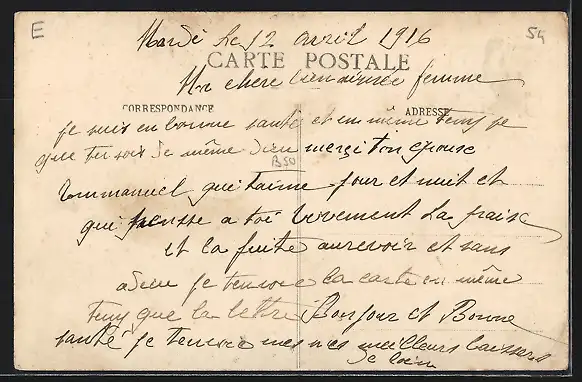 E
54
Mardi le 12 avril 1916
CARTE POSTALE
Ma chere bien aimée femme
CORRESPONDANCE
ADRESSE
je suis en bonne santé et en même temp je
que tu sois de même Dieu merçi ton epouse
B50
Emmanuel qui t'aime jour et nuit et
qui pensse a toi vivement la
et la fuite aurevoir et sans
adieu je tenvoie la carte en même
temp que la lettre Bonjour et Bonne
santé je tenvoie mes meilleurs baissers
de loin